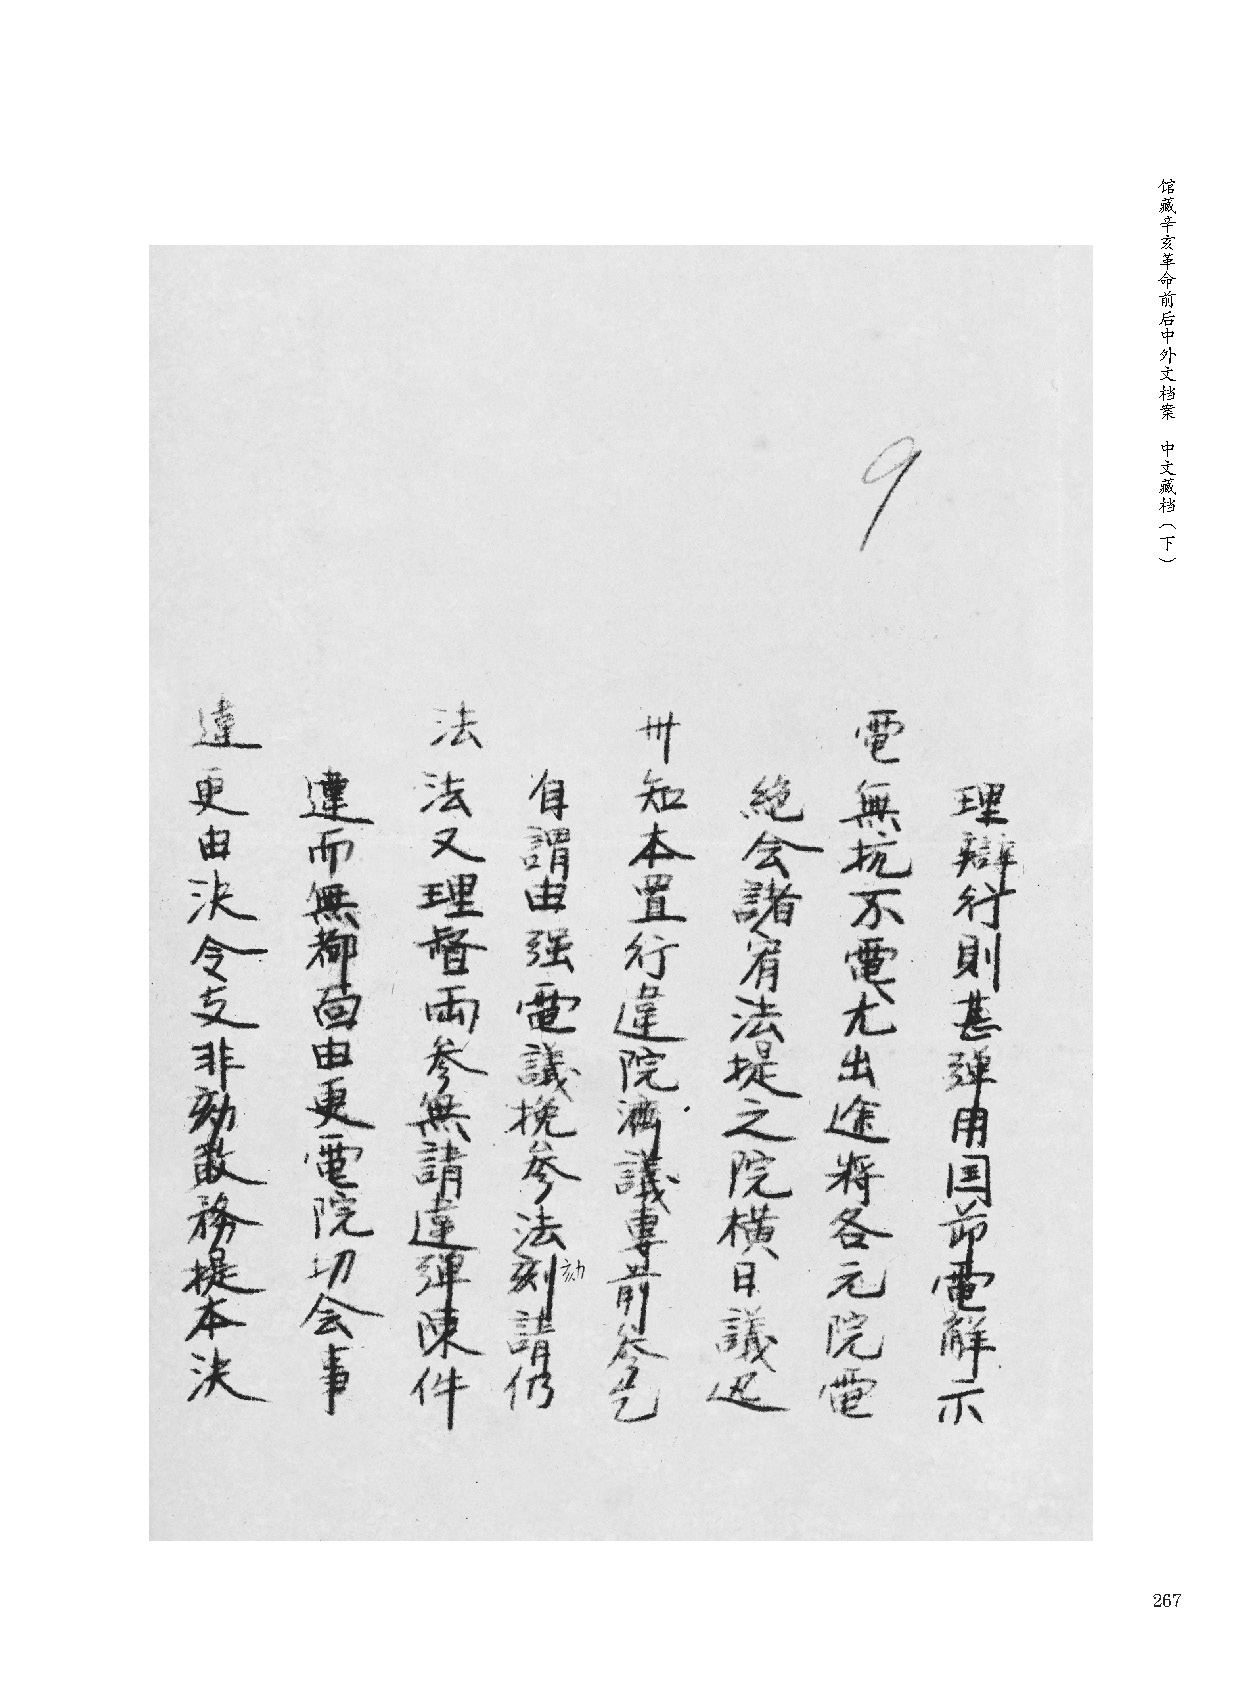 馆藏辛亥革命前后中外文档案 中文藏档（下）
9
理辯行則甚彈用国前電解示
電無抗不電尤出途將各元院電
絶会諸宥法提之院横日議迟
卅知本置行違院濟議專前參乞
自謂由强電議挽參法刻請仍
劾
法法又理督兩參無請違彈陳件
違而無都面由更電院切会事
違更由決令支非劾敢務提本決
267